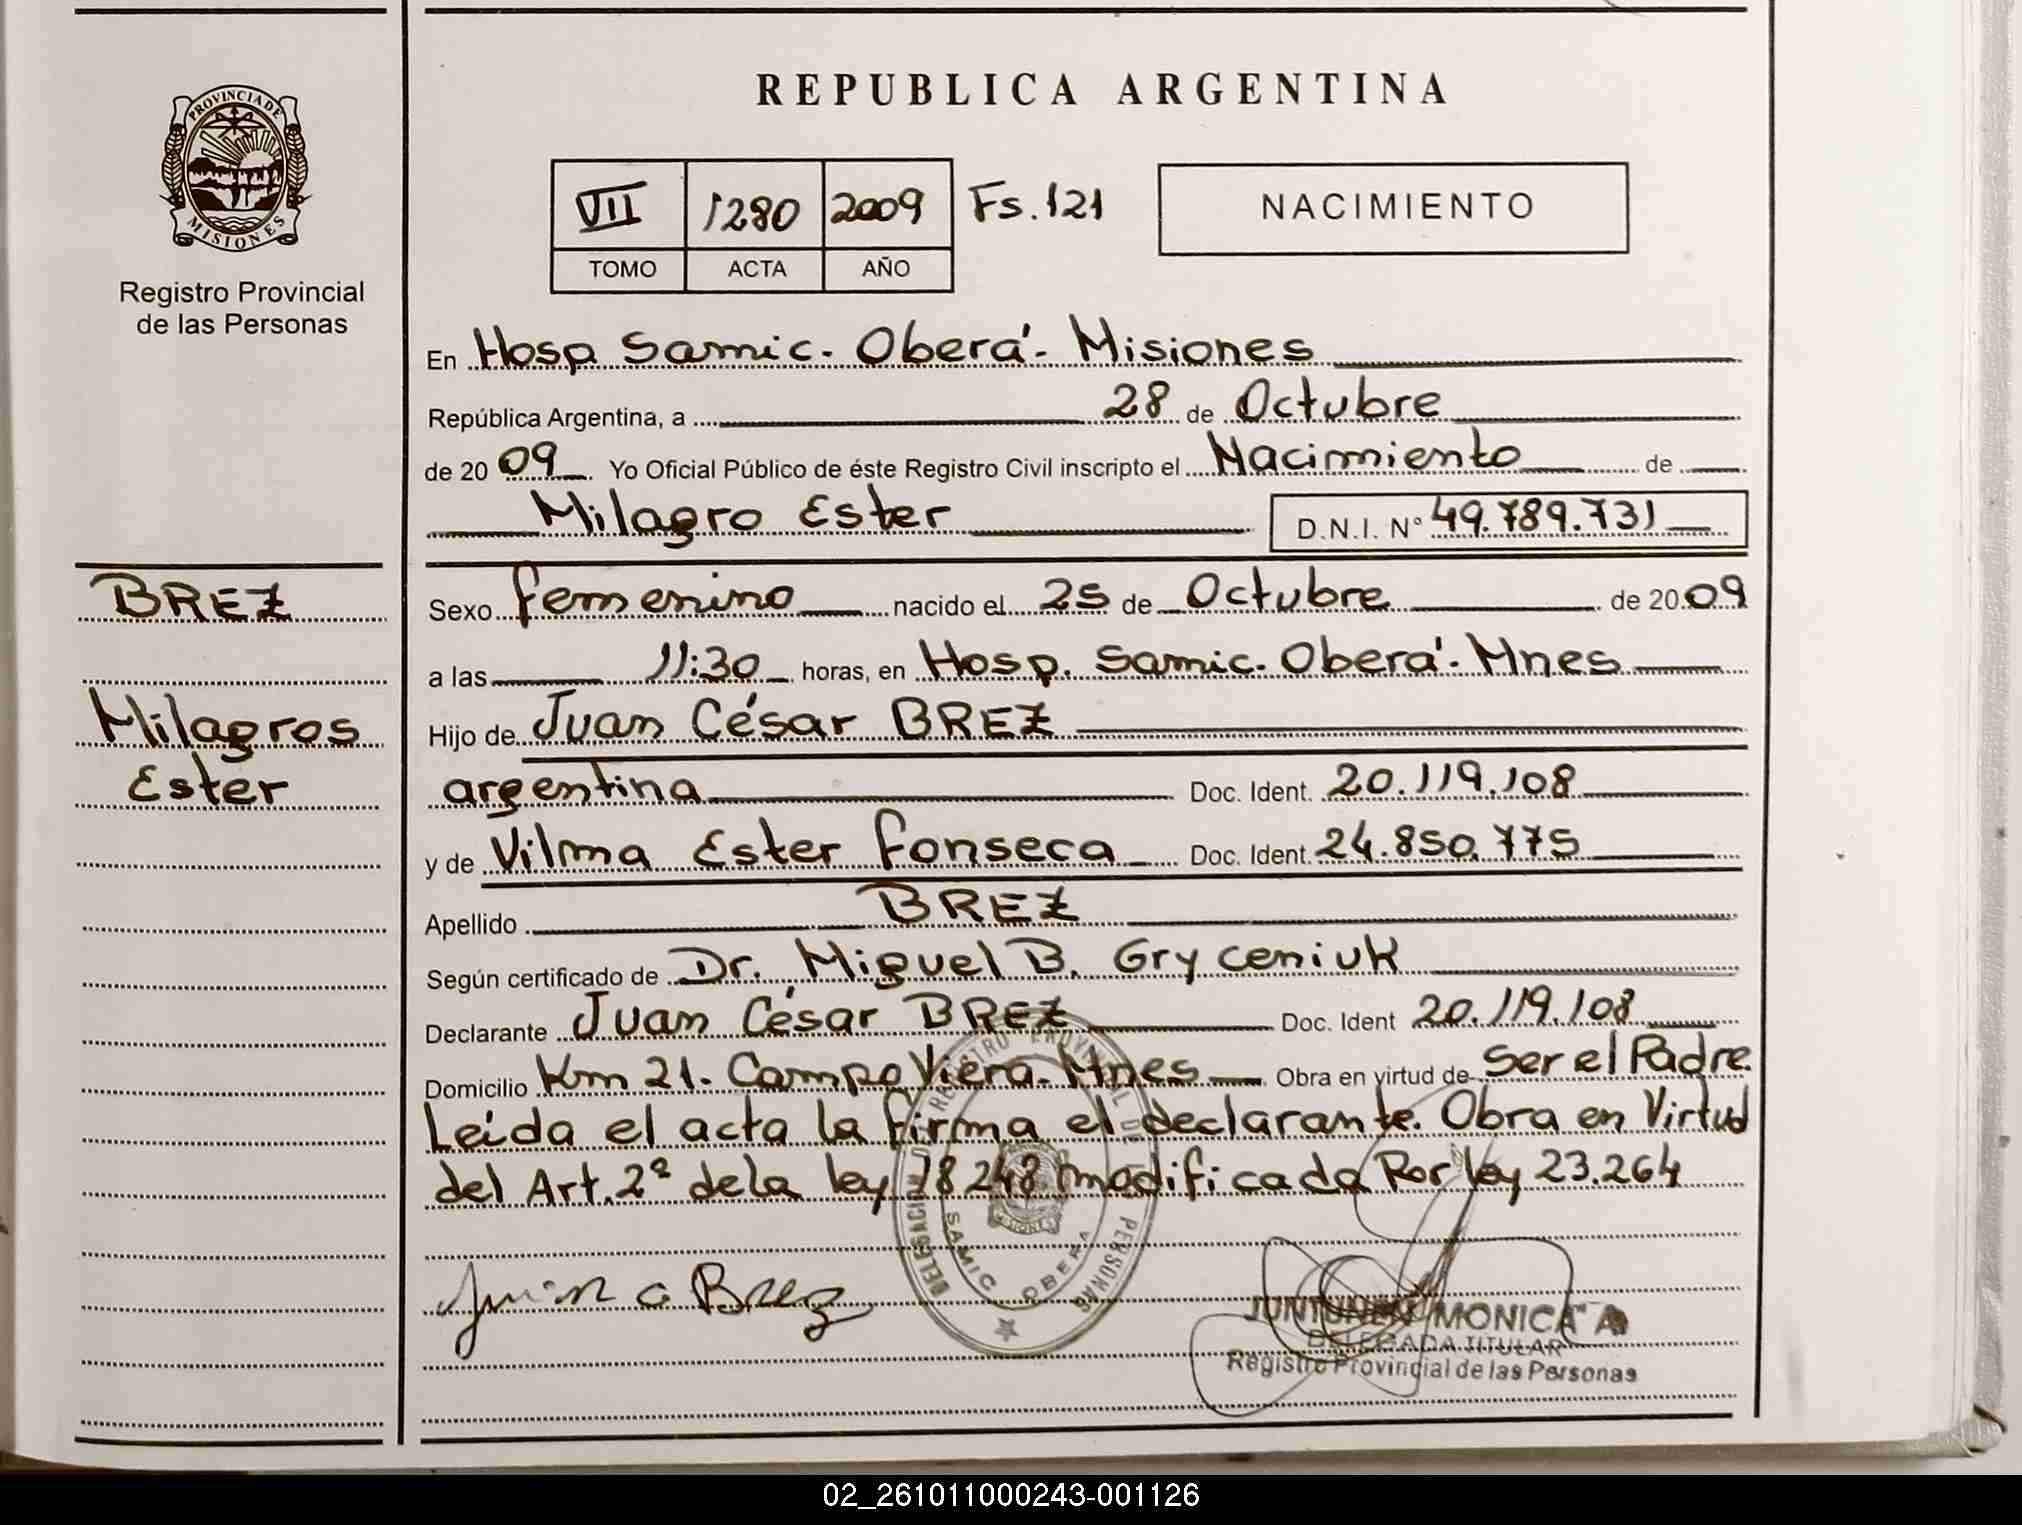 REPUBLICA ARGENTINA
PROVINCIA DE
MISIONES
Registro Provincial
de las Personas
VII 1280 2009 Fs. 121
TOMO ACTA AÑO
NACIMIENTO
En Hosp. Samic. Oberá - Misiones
República Argentina, a 28 de Octubre
de 2009 Yo Oficial Público de éste Registro Civil inscripto el Nacimiento de
Milagro Ester D.N.I. N° 49.789.731
BREZ
Milagros
Ester
Sexo femenino nacido el 25 de Octubre de 2009
a las 11:30 horas, en Hosp. Samic. Oberá - Mnes
Hijo de Juan César BREZ
argentina Doc. Ident. 20.119.108
y de Vilma Ester Fonseca Doc. Ident. 24.850.775
Apellido BREZ
Según certificado de Dr. Miguel B. Gryceniuk
Declarante Juan César BREZ Doc. Ident 20.119.108
Domicilio Km 21. Campo Viera. Mnes Obra en virtud de Ser el Padre.
Leída el acta la firma el declarante. Obra en Virtud
del Art. 2º de la ley 18248 modificada Por ley 23.264
Juan C Brez
SAMIC OBERA
JUNTUNEN MONICA A
DELEGADA TITULAR
Registro Provincial de las Personas
02_261011000243-001126